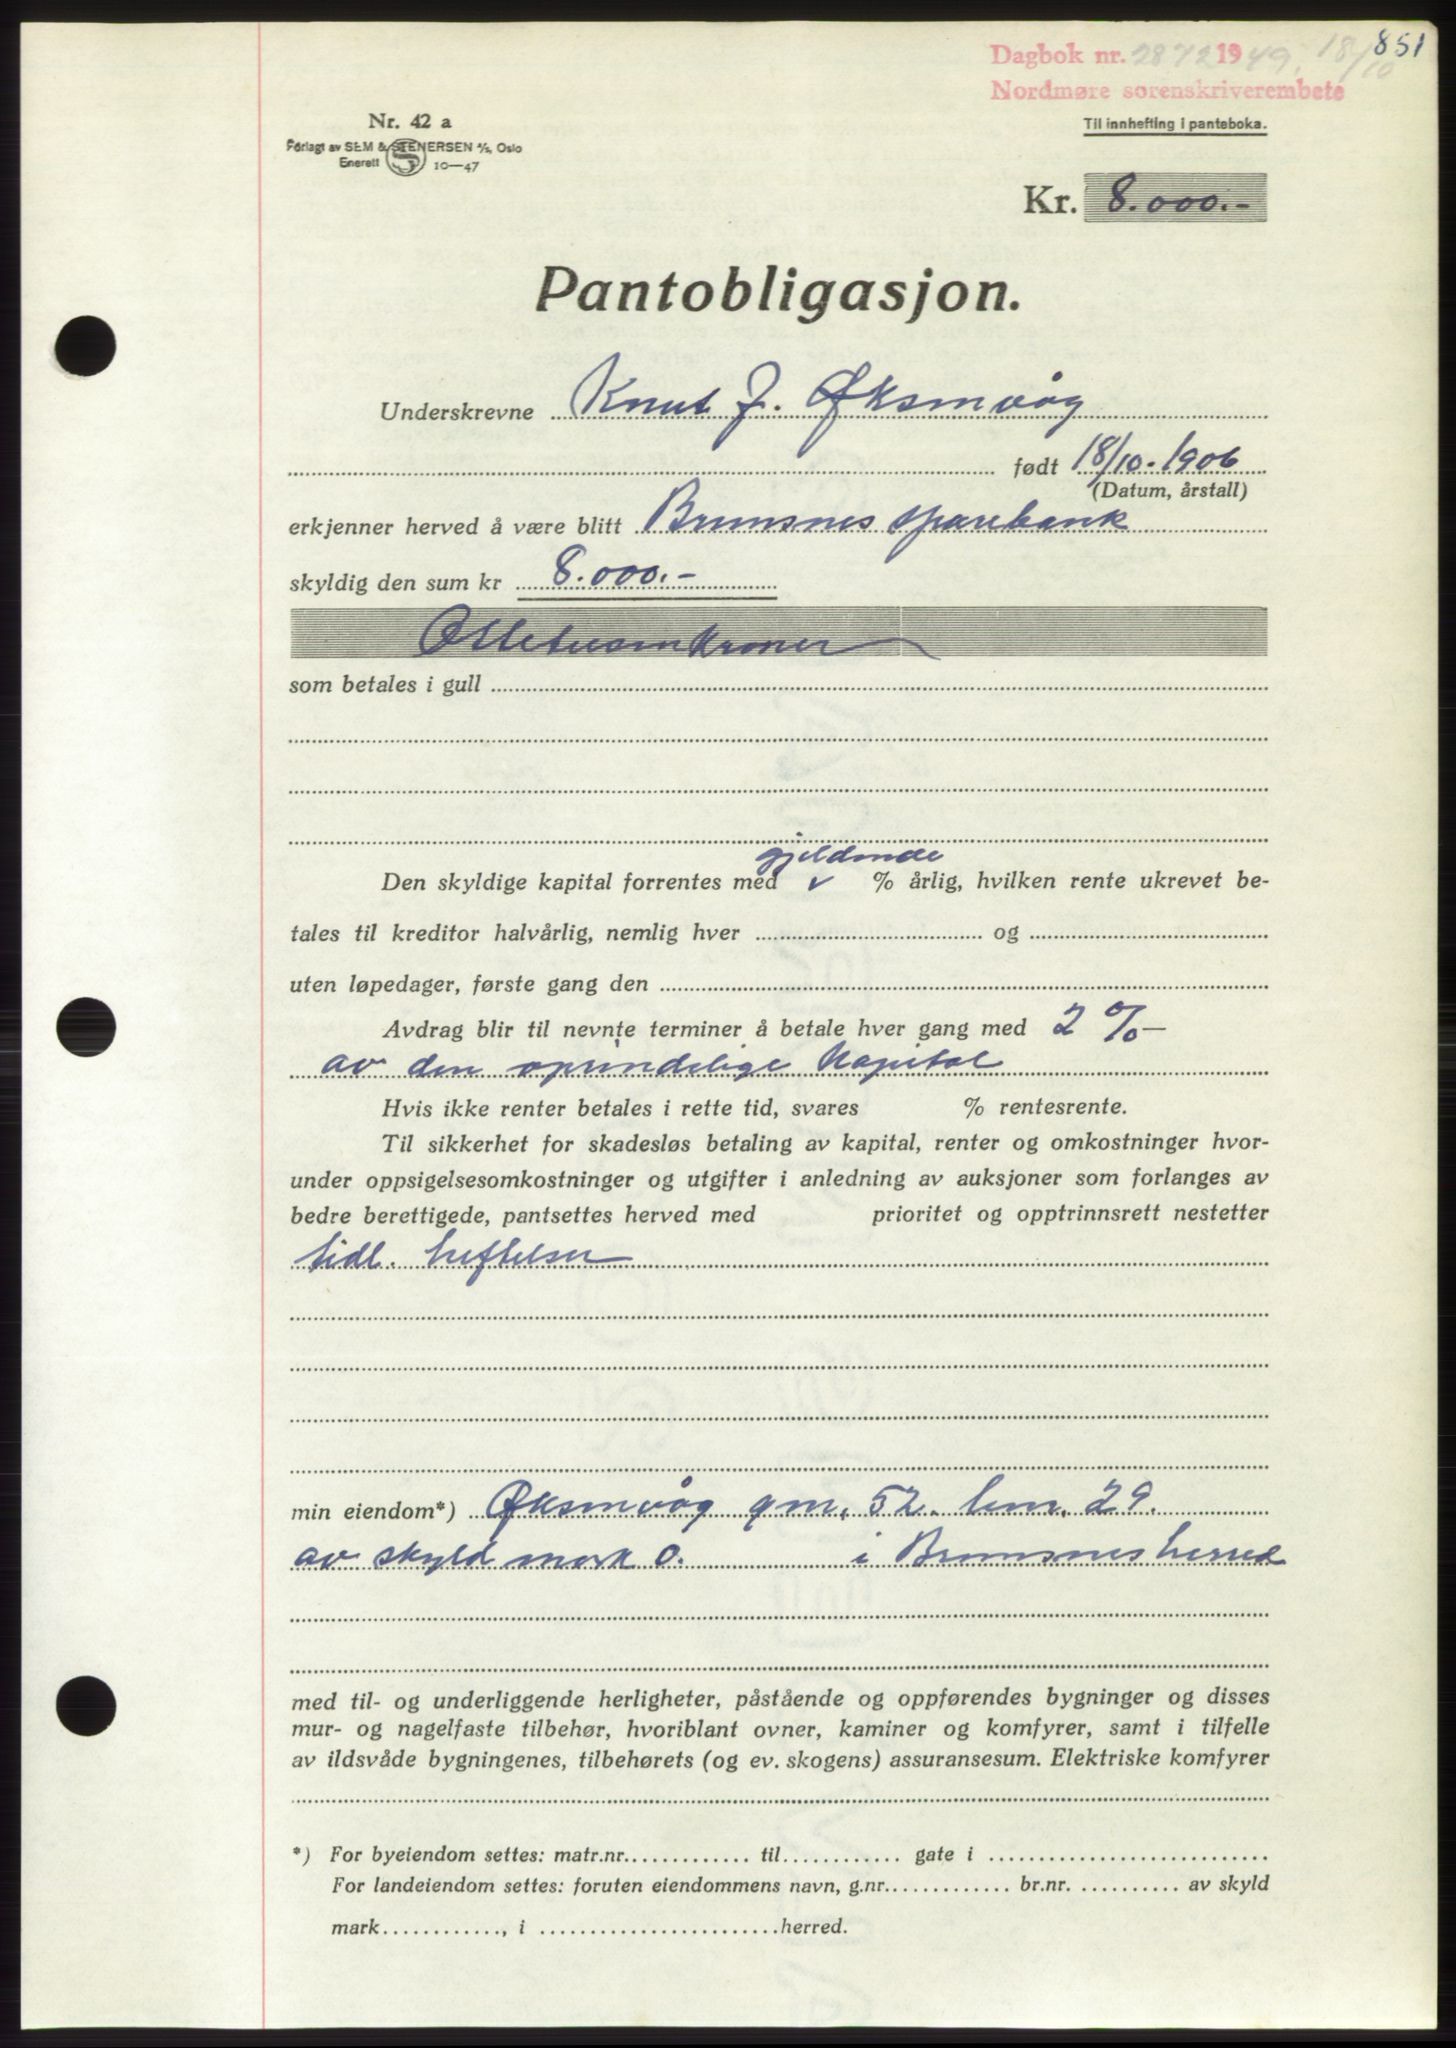 851
Dagbok nr. 2872 1949. 18/10
Nordmøre sorenskriverembete
Til innhefting i panteboka.
Nr. 42 a
Forlagt av SEM & STENERSEN A/S, Oslo
Enerett S 10—47
Kr. 8.000.-
Pantobligasjon.
Underskrevne Knut J. Øksenvåg
født 18/10-1906
(Datum, årstall)
erkjenner herved å være blitt Bremsnes sparebank
skyldig den sum kr 8.000.-
Ottetusenkroner
som betales i gull
gjeldende
Den skyldige kapital forrentes med % årlig, hvilken rente ukrevet be-
tales til kreditor halvårlig, nemlig hver og
uten løpedager, første gang den
Avdrag blir til nevnte terminer å betale hver gang med 2 %-
av den oprindelige kapital
Hvis ikke renter betales i rette tid, svares % rentesrente.
Til sikkerhet for skadesløs betaling av kapital, renter og omkostninger hvor-
under oppsigelsesomkostninger og utgifter i anledning av auksjoner som forlanges av
bedre berettigede, pantsettes herved med prioritet og opptrinnsrett nestetter
tidl. heftelser
min eiendom*) Øksenvåg gnr. 52. bnr. 29.
av skyld mark 0. i Bremsnes herred
med til- og underliggende herligheter, påstående og oppførendes bygninger og disses
mur- og nagelfaste tilbehør, hvoriblant ovner, kaminer og komfyrer, samt i tilfelle
av ildsvåde bygningenes, tilbehørets (og ev. skogens) assuransesum. Elektriske komfyrer
*) For byeiendom settes: matr.nr. til gate i
For landeiendom settes: foruten eiendommens navn, g.nr. br.nr. av skyld
mark , i herred.